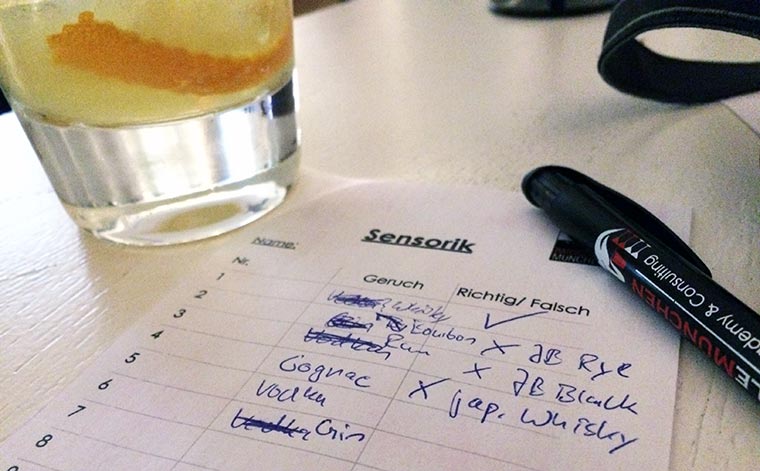 Sensorik
Name:
Nr. Geruch Richtig/ Falsch
1 Whisky ✓
2 Bourbon X JB Rye
3 Rum X JB Black
4 Cognac X jap. Whisky
5 Vodka
6 Gin
7
8
MÜNCHEN
ademy & Consulting
LE MÜNCHEN